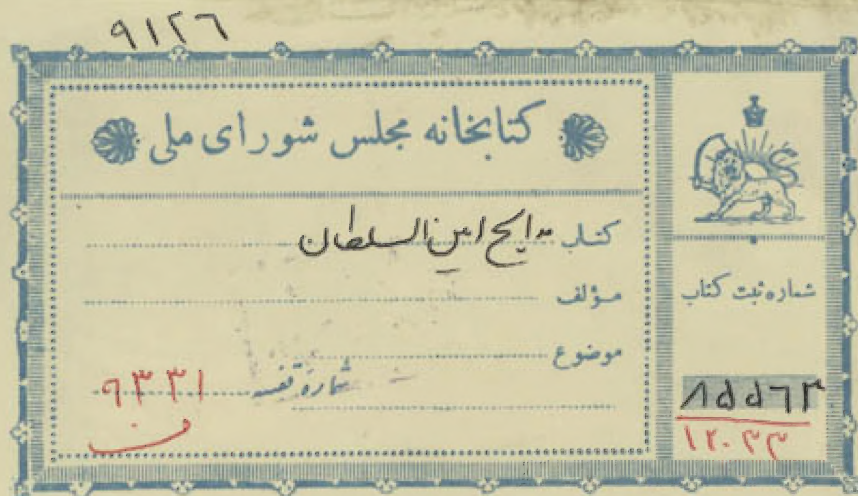 ۹۱۲۶
کتابخانه مجلس شورای ملی
کتاب مدایح امین السلطان
مؤلف
موضوع
شماره قفسه
۹۳۳۱
ف
شماره ثبت کتاب
۸۵۵۶۳
۱۲۰۳۳